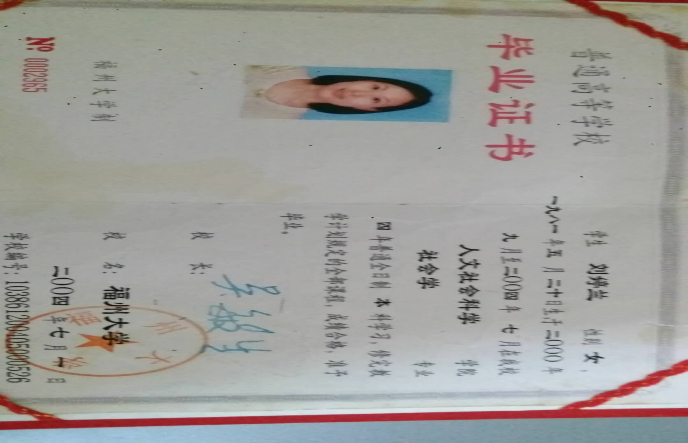 普通高等学校
毕业证书
福州大学制
№ 0002965
学生 刘婷兰 性别 女，
一九八一年五月二十日生于二000年
九月至二00四年七月在我校
人文社会科学 学院
社会学 专业
四年普通全日制本科学习，修完教
学计划规定的全部课程，成绩合格，准予
毕业。
校长：
校名：福州大学
二00四年七月一日
学校编号：